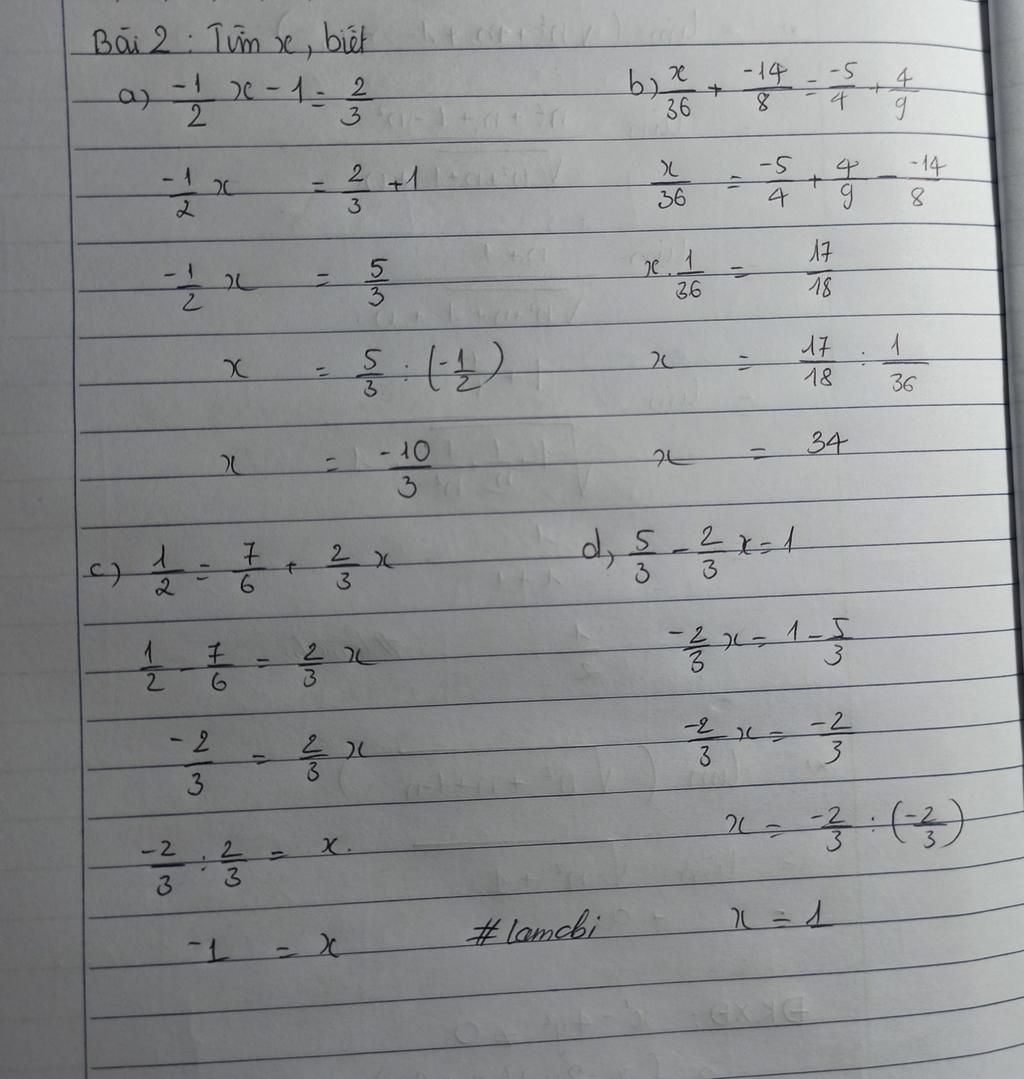 Bài 2 : Tìm x, biết
a) -1/2 x - 1 = 2/3
-1/2 x = 2/3 + 1
-1/2 x = 5/3
x = 5/3 : (-1/2)
x = -10/3
b) x/36 + -14/8 = -5/4 + 4/9
x/36 = -5/4 + 4/9 - -14/8
x . 1/36 = 17/18
x = 17/18 : 1/36
x = 34
c) 1/2 = 7/6 + 2/3 x
1/2 - 7/6 = 2/3 x
-2/3 = 2/3 x
-2/3 : 2/3 = x.
-1 = x
d, 5/3 - 2/3 x = 1
-2/3 x = 1 - 5/3
-2/3 x = -2/3
x = -2/3 : (-2/3)
x = 1
#lamcbi